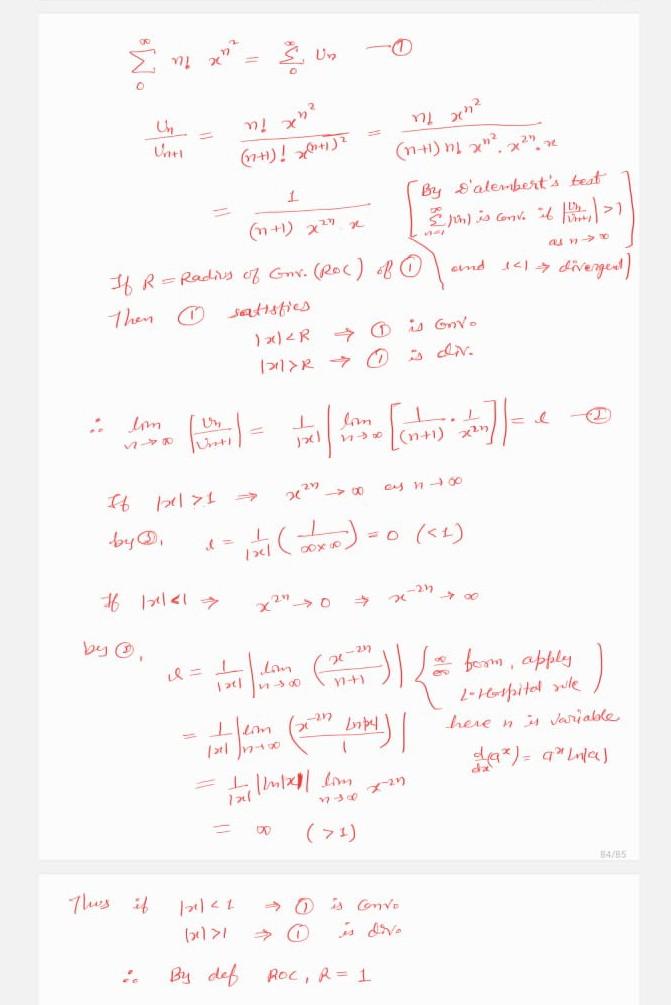 ∞∑0 n! x^{n²} = ∞∑0 Un —①
Un/Un+1 = n! x^{n²} / (n+1)! x^{(n+1)²} = n! x^{n²} / (n+1) n! x^{n²}. x^{2n}. x
= 1 / (n+1) x^{2n} x [By D'alembert's test
∞∑n=1 f(n) is conv. if |Un/Un+1| > 1
as n→∞
If R = Radius of Conv. (ROC) of ① and l<1 ⇒ divergent]
Then ① satisfies
|x| < R ⇒ ① is conv.
|x| > R ⇒ ① is div.
∴ lim n→∞ |Un/Un+1| = 1/|x| |lim n→∞ [1/(n+1) · 1/x^{2n}]| = l —②
If |x| > 1 ⇒ x^{2n} → ∞ as n→∞
by ②, l = 1/|x| (1/∞×∞) = 0 (<1)
If |x| < 1 ⇒ x^{2n} → 0 ⇒ x^{-2n} → ∞
by ②,
l = 1/|x| |lim n→∞ (x^{-2n}/n+1)| {∞/∞ form, apply
L-Hospital rule)
= 1/|x| |lim n→∞ (x^{-2n} ln|x|/1)| here n is variable
d/dx(a^x) = a^x ln|a|
= 1/|x| |ln|x|| lim n→∞ x^{-2n}
= ∞ (>1)
84/85
Thus if |x| < 1 ⇒ ① is conv.
|x| > 1 ⇒ ① is div.
∴ By def ROC, R = 1